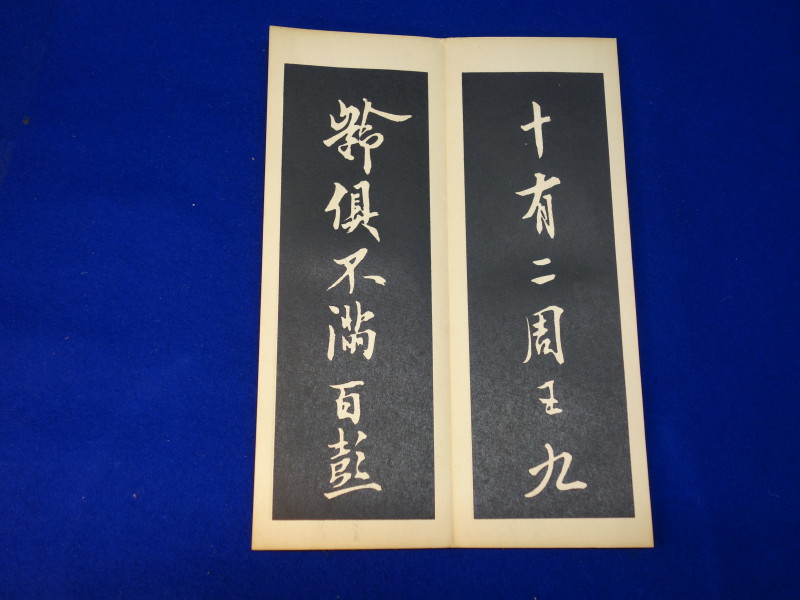 十有二周王九
齡俱不滿百彭